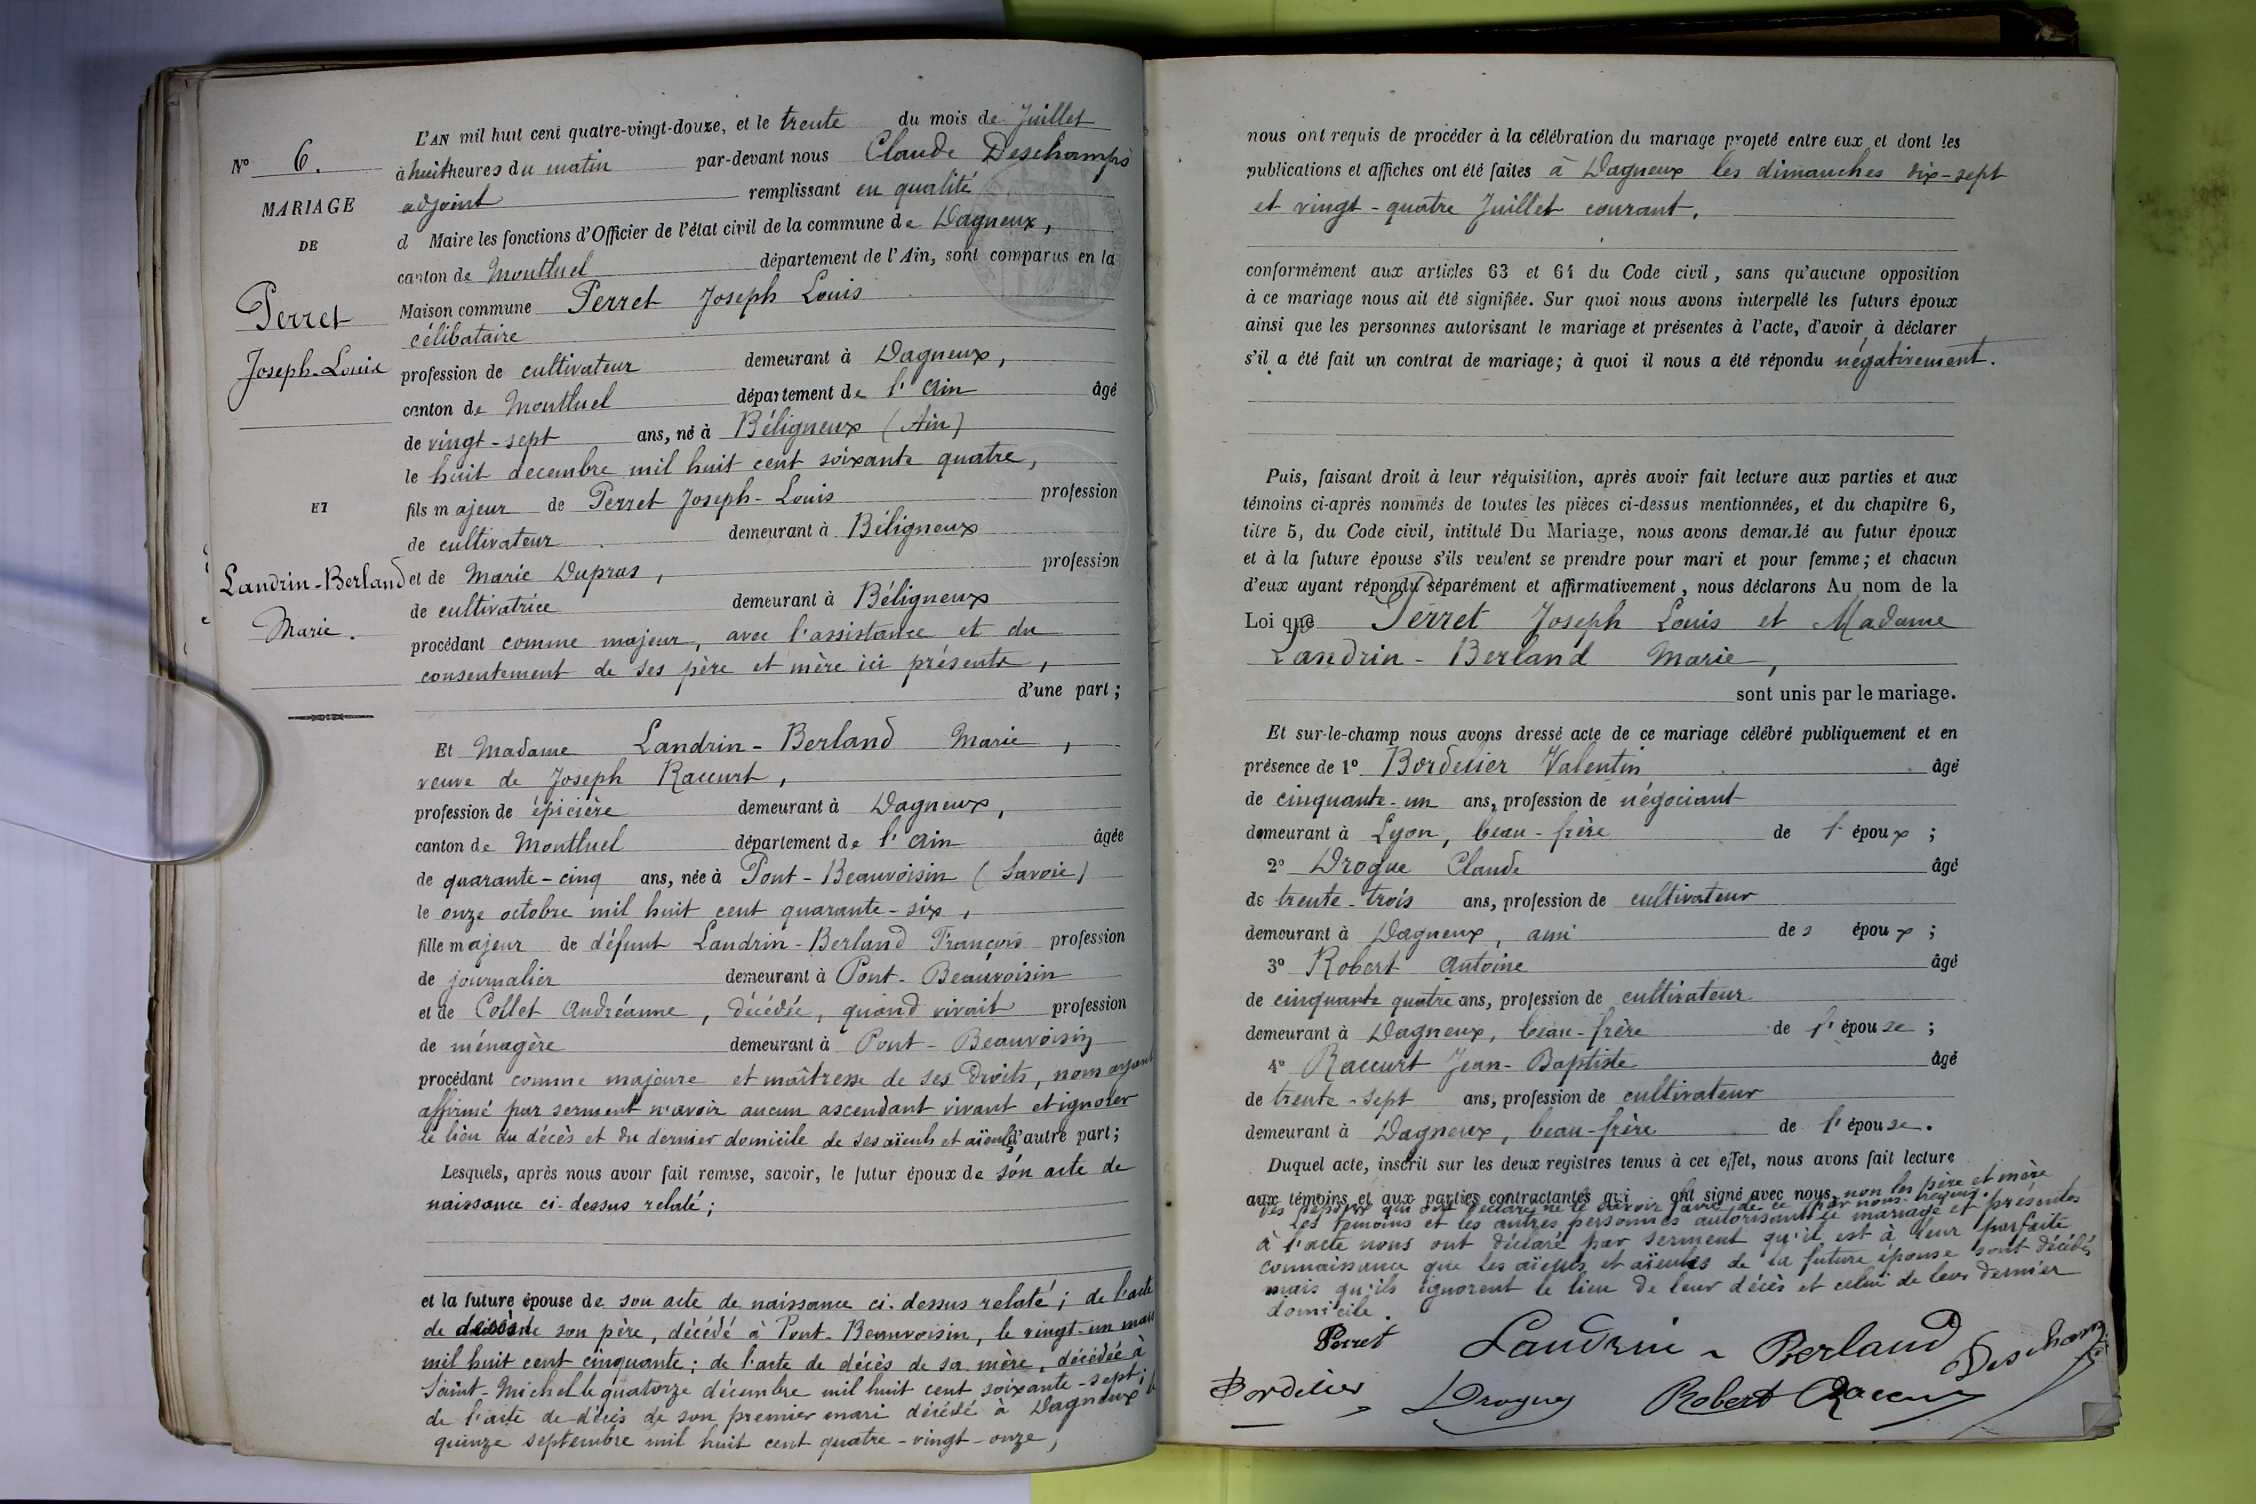 L'AN mil huit cent quatre-vingt-douze, et le trente du mois de Juillet
N° 6. à huit heures du matin par-devant nous Claude Deschamps
MARIAGE
adjoint remplissant en qualité
DE
d Maire les fonctions d'Officier de l'état civil de la commune de Dagneux,
canton de Montluel département de l'Ain, sont comparus en la
Perret
Maison commune Perret Joseph Louis
célibataire
Joseph-Louis
profession de cultivateur demeurant à Dagneux,
canton de Montluel département de l'Ain âgé
de vingt-sept ans, né à Béligneux (Ain)
le huit decembre mil huit cent soixante quatre,
ET
fils majeur de Perret Joseph-Louis profession
de cultivateur demeurant à Béligneux
Landrin-Berland
et de Marie Dupras, profession
de cultivatrice demeurant à Béligneux
Marie.
procédant comme majeur, avec l'assistance et du
consentement de ses père et mère ici présents,
d'une part;
Et Madame Landrin-Berland Marie,
veuve de Joseph Raccurt,
profession de épicière demeurant à Dagneux,
canton de Montluel département de l'Ain âgée
de quarante-cinq ans, née à Pont-Beauvoisin (Savoie)
le onze octobre mil huit cent quarante-six,
fille majeur de défunt Landrin-Berland François profession
de journalier demeurant à Pont-Beauvoisin
et de Collet Andréanne, décédée, quand vivait profession
de ménagère demeurant à Pont-Beauvoisin
procédant comme majeure et maîtresse de ses droits, nous ayant
affirmé par serment n'avoir aucun ascendant vivant et ignorer
le lieu du décès et du dernier domicile de ses aïeuls et aïeules d'autre part;
Lesquels, après nous avoir fait remise, savoir, le futur époux de son acte de
naissance ci-dessus relaté;
et la future épouse de son acte de naissance ci-dessus relaté; de l'acte
de décès de son père, décédé à Pont-Beauvoisin, le vingt-un mars
mil huit cent cinquante; de l'acte de décès de sa mère, décédée à
Saint-Michel le quatorze décembre mil huit cent soixante-sept;
de l'acte de décès de son premier mari décédé à Dagneux le
quinze septembre mil huit cent quatre-vingt-onze,
nous ont requis de procéder à la célébration du mariage projeté entre eux et dont les
publications et affiches ont été faites à Dagneux les dimanches dix-sept
et vingt-quatre Juillet courant.
conformément aux articles 63 et 64 du Code civil, sans qu'aucune opposition
à ce mariage nous ait été signifiée. Sur quoi nous avons interpellé les futurs époux
ainsi que les personnes autorisant le mariage et présentes à l'acte, d'avoir à déclarer
s'il a été fait un contrat de mariage; à quoi il nous a été répondu négativement.
Puis, faisant droit à leur réquisition, après avoir fait lecture aux parties et aux
témoins ci-après nommés de toutes les pièces ci-dessus mentionnées, et du chapitre 6,
titre 5, du Code civil, intitulé Du Mariage, nous avons demandé au futur époux
et à la future épouse s'ils veulent se prendre pour mari et pour femme; et chacun
d'eux ayant répondu séparément et affirmativement, nous déclarons Au nom de la
Loi que Perret Joseph Louis et Madame
Landrin-Berland Marie,
sont unis par le mariage.
Et sur-le-champ nous avons dressé acte de ce mariage célébré publiquement et en
présence de 1° Bordelier Valentin âgé
de cinquante-un ans, profession de négociant
demeurant à Lyon, beau-frère de l'époux;
2° Drogue Claude âgé
de trente-trois ans, profession de cultivateur
demeurant à Dagneux, ami des époux;
3° Robert Antoine âgé
de cinquante quatre ans, profession de cultivateur
demeurant à Dagneux, beau-frère de l'épouse;
4° Raccurt Jean-Baptiste âgé
de trente-sept ans, profession de cultivateur
demeurant à Dagneux, beau-frère de l'épouse.
Duquel acte, inscrit sur les deux registres tenus à cet effet, nous avons fait lecture
aux témoins et aux parties contractantes qui ont signé avec nous, non les père et mère
qui ont déclaré ne le savoir de ce par nous requis.
Les témoins et les autres personnes autorisant le mariage et présentes
à l'acte nous ont déclaré par serment qu'il est à leur parfaite
connaissance que les aïeuls et aïeules de la future épouse sont décédés
mais qu'ils ignorent le lieu de leur décès et celui de leur dernier
domicile.
Perret Landrin-Berland Deschamps
Bordelier Drogue Robert Raccurt